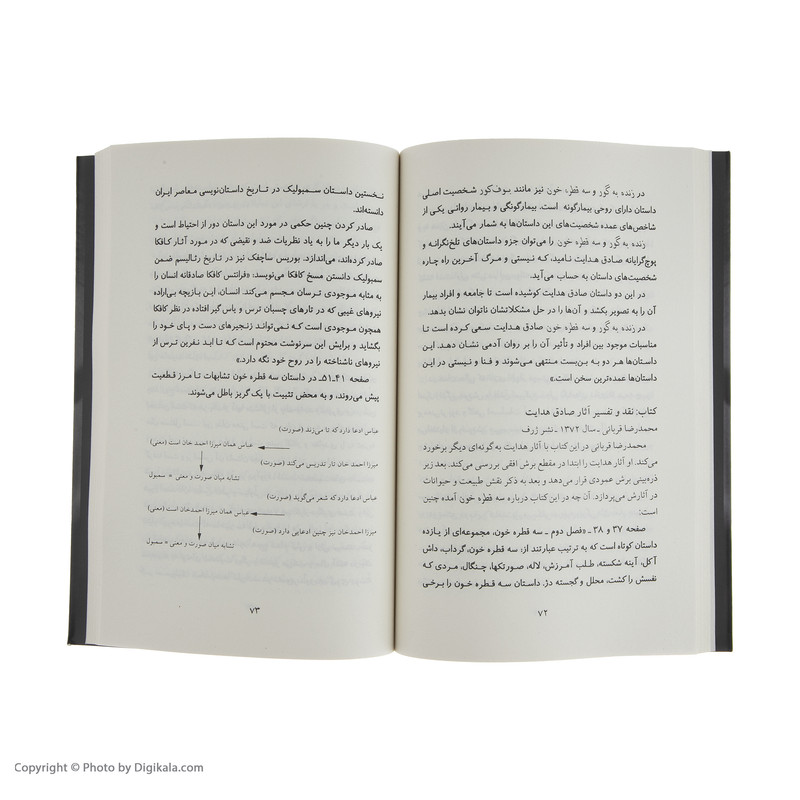 در زنده به گور و سه قطره خون نیز مانند بوف‌کور شخصیت اصلی
داستان دارای روحی بیمارگونه است. بیمارگونگی و بیمار روانی یکی از
شاخص‌های عمده شخصیت‌های این داستان‌ها به شمار می‌آیند.
زنده به گور و سه قطره خون را می‌توان جزو داستان‌های تلخ‌نگرانه و
پوچ‌گرایانه صادق هدایت نامید، که نیستی و مرگ آخرین راه چاره
شخصیت‌های داستان به حساب می‌آید.
در این دو داستان صادق هدایت کوشیده است تا جامعه و افراد بیمار
آن را به تصویر بکشد و آن‌ها را در حل مشکلاتشان ناتوان نشان بدهد.
در زنده به گور و سه قطره خون صادق هدایت سعی کرده است تا
مناسبات موجود بین افراد و تأثیر آن را بر روان آدمی نشان دهد. این
داستان‌ها هر دو به بن‌بست منتهی می‌شوند و فنا و نیستی در این
داستان‌ها عمده‌ترین سخن است.»
کتاب: نقد و تفسیر آثار صادق هدایت
محمدرضا قربانی ـ سال ۱۳۷۲ ـ نشر ژرف
محمدرضا قربانی در این کتاب با آثار هدایت به گونه‌ای دیگر برخورد
می‌کند. او آثار هدایت را ابتدا در مقطع برش افقی بررسی می‌کند. بعد زیر
ذره‌بینی برش عمودی قرار می‌دهد و بعد به ذکر نقش طبیعت و حیوانات
در آثارش می‌پردازد. آن چه در این کتاب درباره سه قطره خون آمده چنین
است:
صفحه ۳۷ و ۳۸ ـ «فصل دوم ـ سه قطره خون، مجموعه‌ای از یازده
داستان کوتاه است که به ترتیب عبارتند از: سه قطره خون، گرداب، داش
آکل، آینه شکسته، طلب آمرزش، لاله، صورتکها، چنگال، مردی که
نفسش را کشت، محلل و گجسته دژ. داستان سه قطره خون را برخی
۷۲
نخستین داستان سمبولیک در تاریخ داستان‌نویسی معاصر ایران
دانسته‌اند.
صادر کردن چنین حکمی در مورد این داستان دور از احتیاط است و
یک بار دیگر ما را به یاد نظریات ضد و نقیضی که در مورد آثار کافکا
صادر کرده‌اند، می‌اندازد. بوریس ساچکف نیز در تاریخ رئالیسم ضمن
سمبولیک دانستن مسخ کافکا می‌نویسد: «فرانتس کافکا صادقانه انسان را
به مثابه موجودی ترسان مجسم می‌کند. انسان، این بازیچه بی‌اراده
نیروهای غیبی که در تارهای چسبان ترس و یاس گیر افتاده در نظر کافکا
همچون موجودی است که نمی‌تواند زنجیرهای دست و پای خود را
بگشاید و برایش این سرنوشت محتوم است که تا ابد نفرین ترس از
نیروهای ناشناخته را در روح خود نگه دارد.»
صفحه ۴۱ـ۵۱ـ در داستان سه قطره خون تشابهات تا مرز قطعیت
پیش می‌روند، و به محض تثبیت با یک گریز باطل می‌شوند.
عباس ادعا دارد که تا می‌زند (صورت)
عباس همان میرزا احمد خان است (معنی)
میرزا احمد خان تار تدریس می‌کند (صورت)
تشابه میان صورت و معنی = سمبول
عباس ادعا دارد که شعر می‌گوید (صورت)
عباس همان میرزا احمدخان است (معنی)
میرزا احمدخان نیز چنین ادعایی دارد (صورت)
تشابه میان صورت و معنی = سمبول
۷۳
Copyright © Photo by Digikala.com